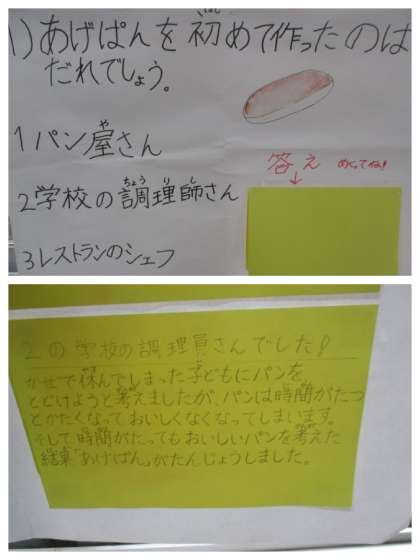 1)あげぱんを初めて作ったのは
だれでしょう。
1パン屋さん
答え めくってね!
2学校の調理師さん
3レストランのシェフ
2の学校の調理員さんでした!
かぜで休んでしまった子どもにパンを
とどけようと考えましたが、パンは時間がたつ
とかたくなっておいしくなくなってしまいます。
そして時間がたってもおいしいパンを考えた
結果「あげぱん」がたんじょうしました。